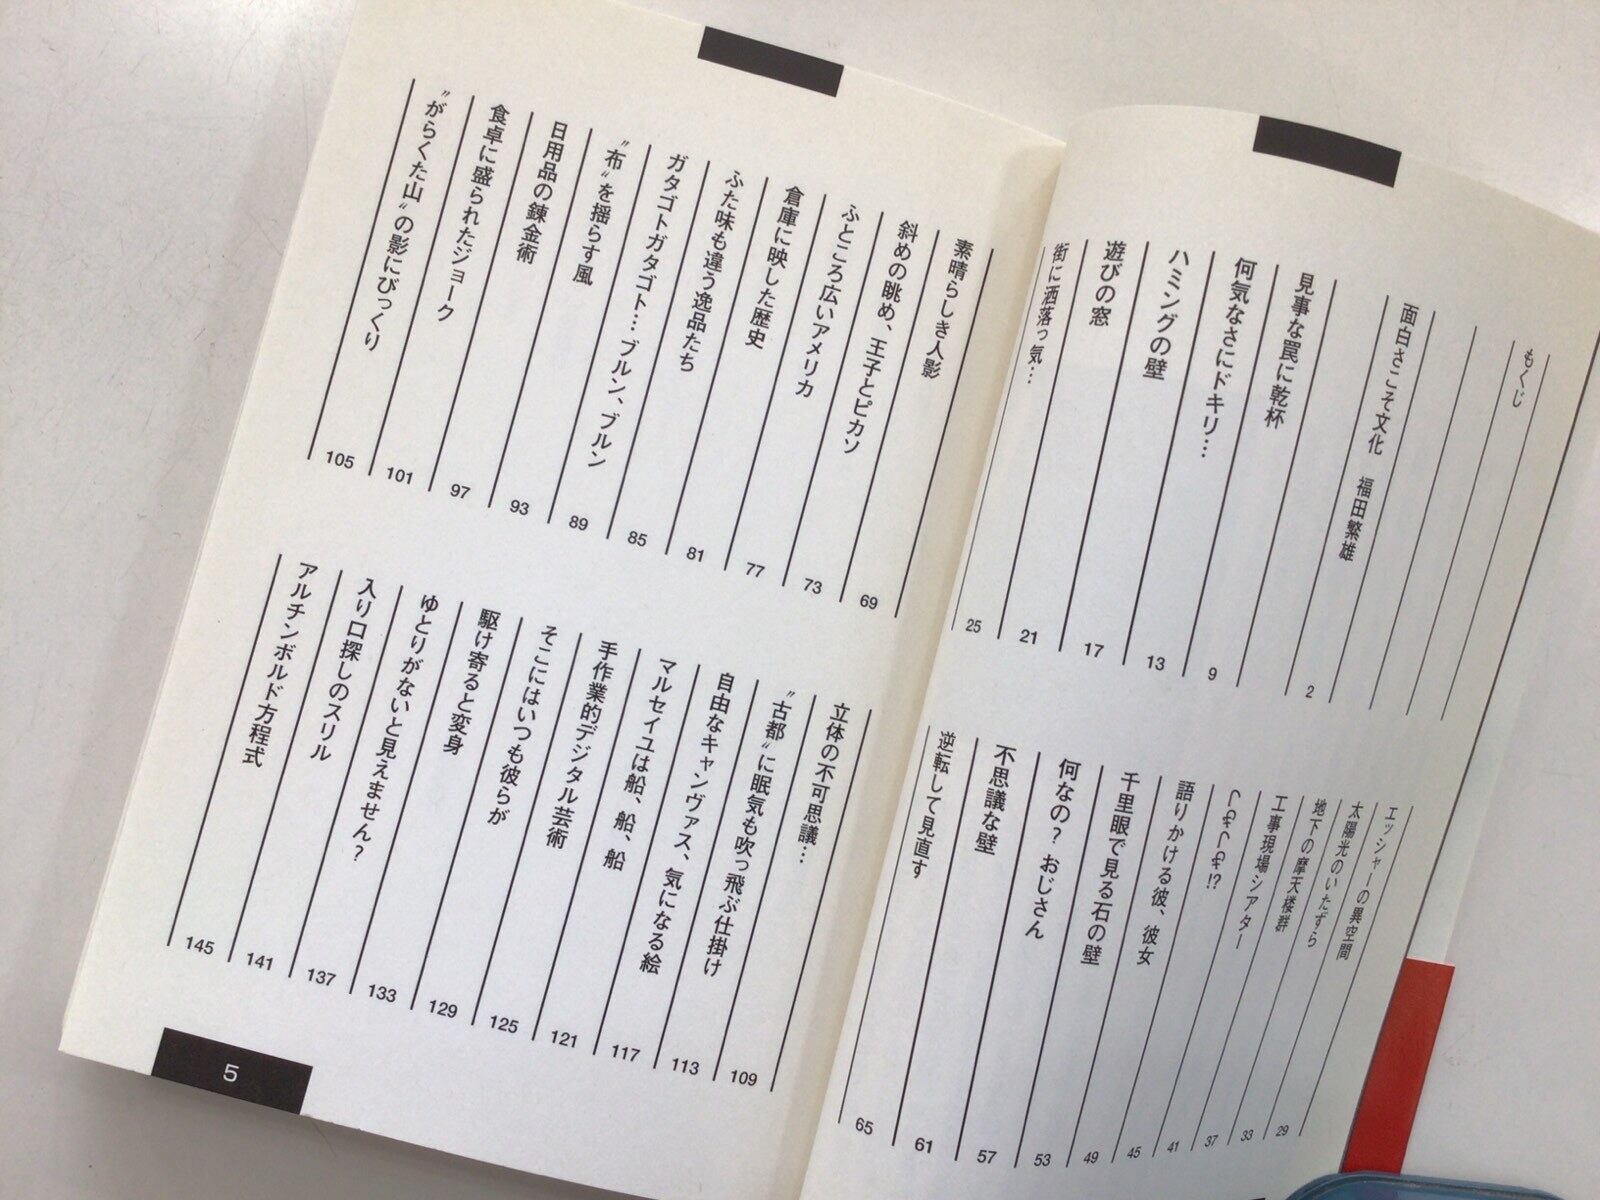 もくじ
面白さこそ文化　福田繁雄 2
見事な罠に乾杯 9
何気なさにドキリ… 13
ハミングの壁 17
遊びの窓 21
街に洒落っ気… 25
エッシャーの異空間 29
太陽光のいたずら 33
地下の摩天楼群 37
工事現場シアター 41
45
語りかける彼、彼女 49
千里眼で見る石の壁 53
何なの？ おじさん 57
不思議な壁 61
逆転して見直す 65
素晴らしき人影 69
斜めの眺め、王子とピカソ 73
ふところ広いアメリカ 77
倉庫に映した歴史 81
ふた味も違う逸品たち 85
ガタゴトガタゴト…ブルン、ブルン 89
〝布〟を揺らす風 93
日用品の錬金術 97
食卓に盛られたジョーク 101
〝がらくた山〟の影にびっくり 105
立体の不可思議… 109
〝古都〟に眠気も吹っ飛ぶ仕掛け 113
自由なキャンヴァス、気になる絵 117
マルセイユは船、船、船 121
手作業的デジタル芸術 125
そこにはいつも彼らが 129
駆け寄ると変身 133
ゆとりがないと見えません？ 137
入り口探しのスリル 141
アルチンボルド方程式 145
5